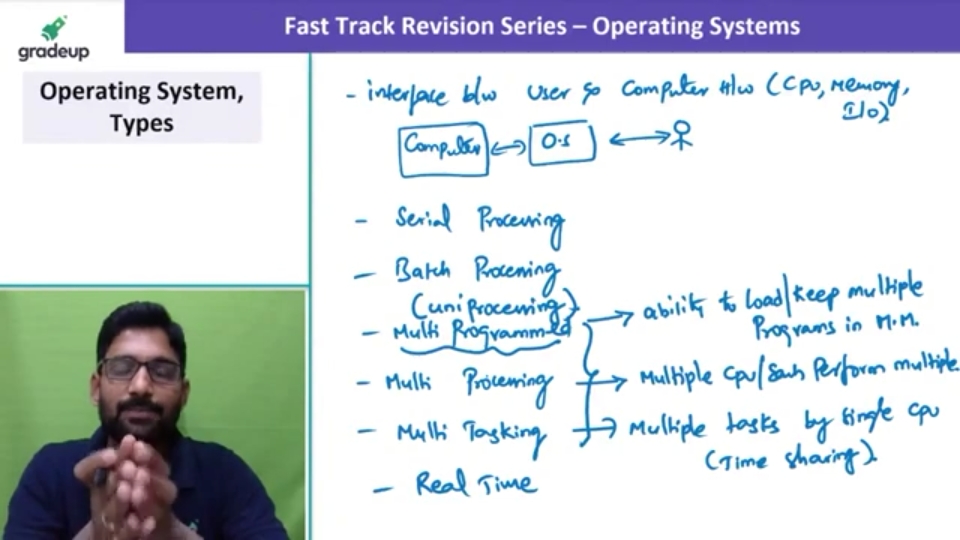 gradeup
Fast Track Revision Series – Operating Systems
Operating System,
Types
- interface b/w User & Computer H/w (CPU, Memory,
I/O)
Computer O.S
- Serial Processing
- Batch Processing
(uniprocessing)
- Multi Programmed → ability to load/keep multiple
Programs in M.M.
- Multi Processing → Multiple CPU/ Perform multiple
- Multi Tasking → Multiple tasks by single CPU
(Time sharing).
- Real Time